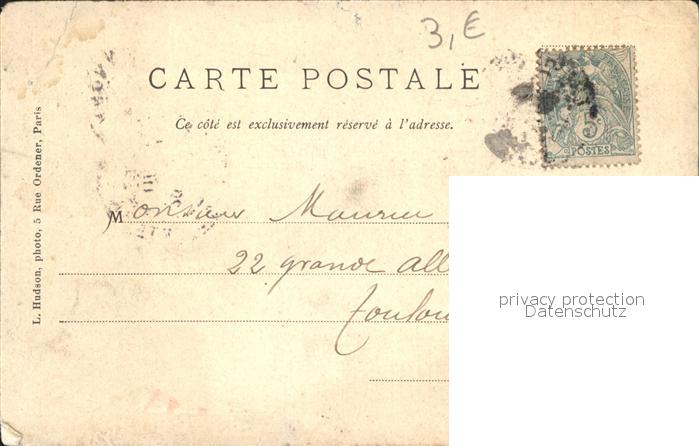 3, €
CARTE POSTALE
Ce côté est exclusivement réservé à l'adresse.
5
POSTES
L. Hudson, photo, 5 Rue Ordener, Paris
Monsieur
22 grande All
Toulou
privacy protection
Datenschutz